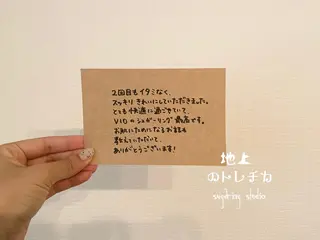 2回目もイタミなく、
スッキリきれいにしていただきました。
とても快適に過ごせていて、
VIOのシュガーリング最高です。
お肌にためになるお話も
教えていただいて、
ありがとうございます!
地上
のトレチカ
sugaring studio